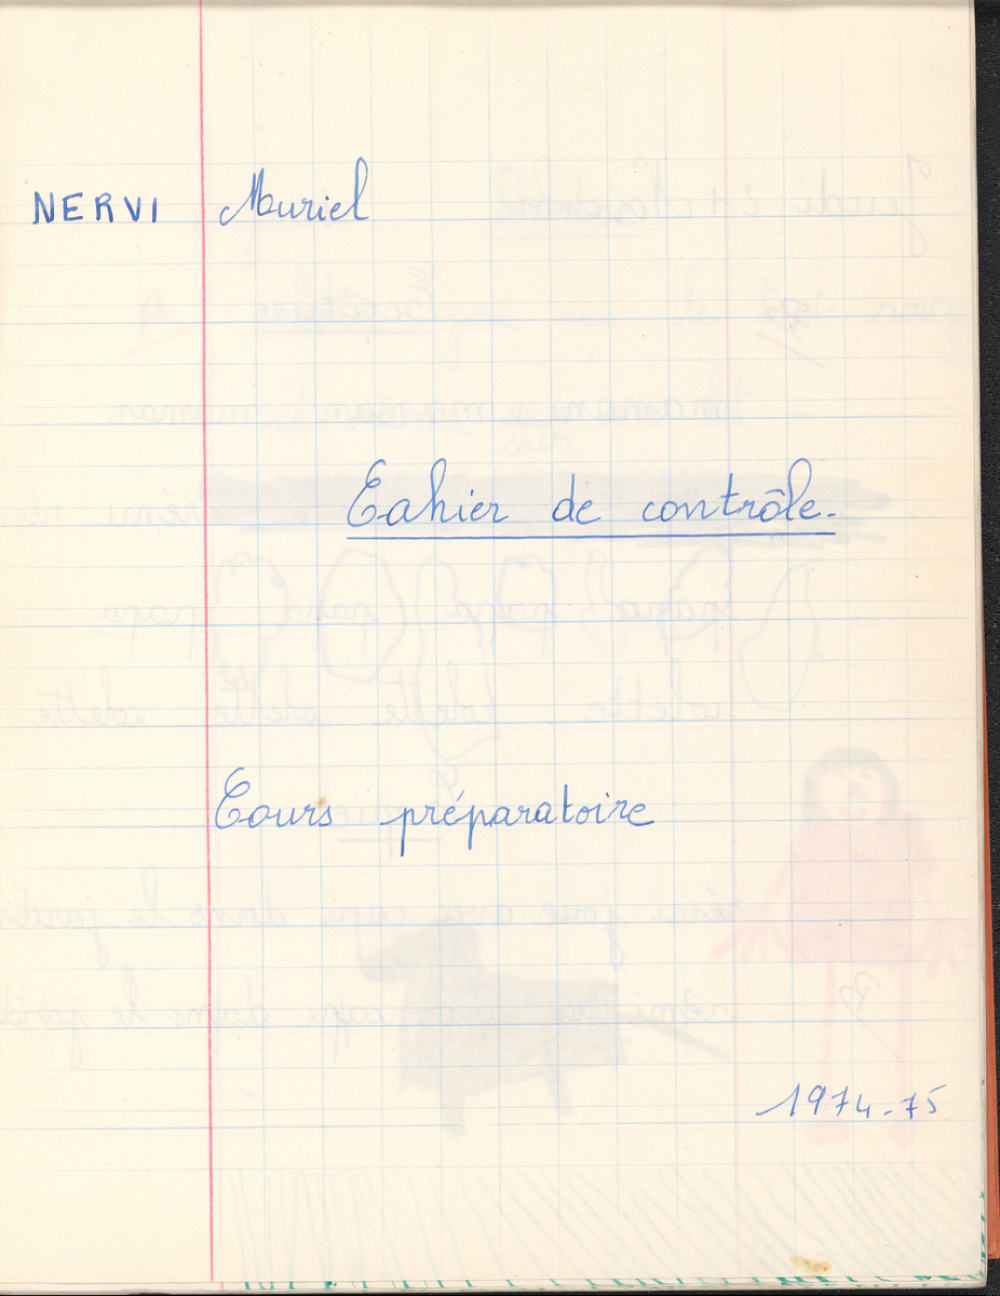 NERVI Muriel
Cahier de contrôle.
Cours préparatoire
1974-75